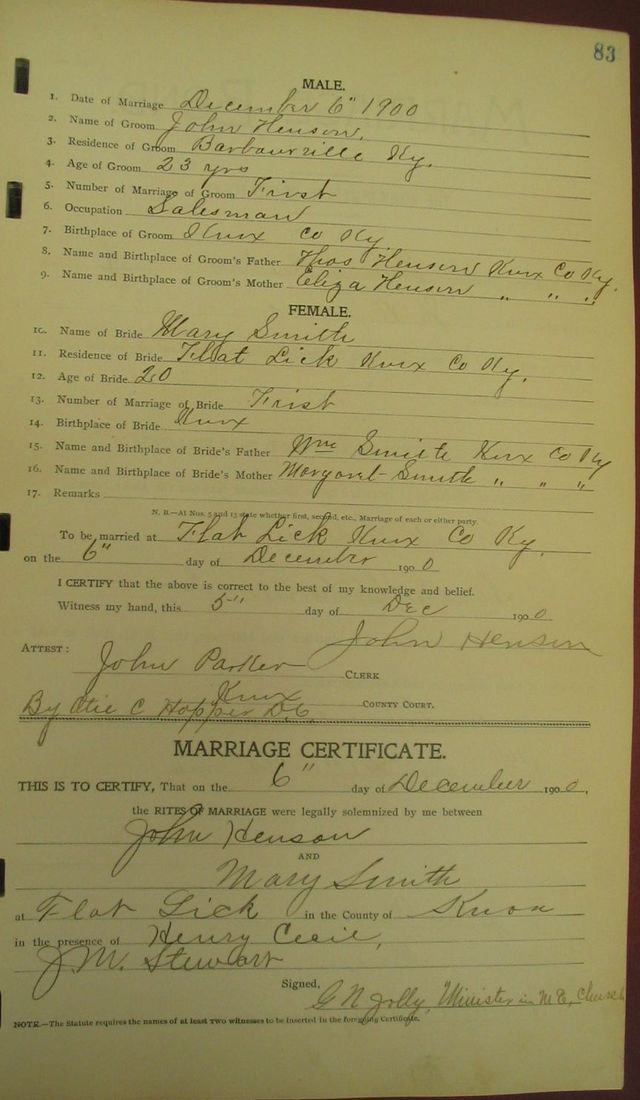 83
MALE.
1. Date of Marriage December 6" 1900
2. Name of Groom John Henson,
3. Residence of Groom Barbourville Ky.
4. Age of Groom 23 yrs
5. Number of Marriage of Groom First
6. Occupation Salesman
7. Birthplace of Groom Knox Co Ky
8. Name and Birthplace of Groom's Father Thos Henson Knox Co Ky.
9. Name and Birthplace of Groom's Mother Eliza Henson " " "
FEMALE.
10. Name of Bride Mary Smith
11. Residence of Bride Flat Lick Knox Co Ky.
12. Age of Bride 20
13. Number of Marriage of Bride First
14. Birthplace of Bride Knox
15. Name and Birthplace of Bride's Father Wm Smith Knox Co Ky
16. Name and Birthplace of Bride's Mother Margaret Smith " " "
17. Remarks
N. B.—At Nos. 5 and 13 state whether first, second, etc., Marriage of each or either party.
To be married at Flat Lick Knox Co Ky.
on the 6" day of December 1900
I CERTIFY that the above is correct to the best of my knowledge and belief.
Witness my hand, this 5" day of Dec 1900
John Henson
ATTEST:
John Parker CLERK
Knox COUNTY COURT.
By C Hopper D.C.
MARRIAGE CERTIFICATE.
THIS IS TO CERTIFY, That on the 6" day of December 1900,
the RITES OF MARRIAGE were legally solemnized by me between
John Henson
AND
Mary Smith
at Flat Lick in the County of Knox
in the presence of Henry Cecil,
J.M. Stewart
Signed,
G N Jolly, Minister in M.E. Church
NOTE.—The Statute requires the names of at least two witnesses to be inserted in the foregoing Certificate.